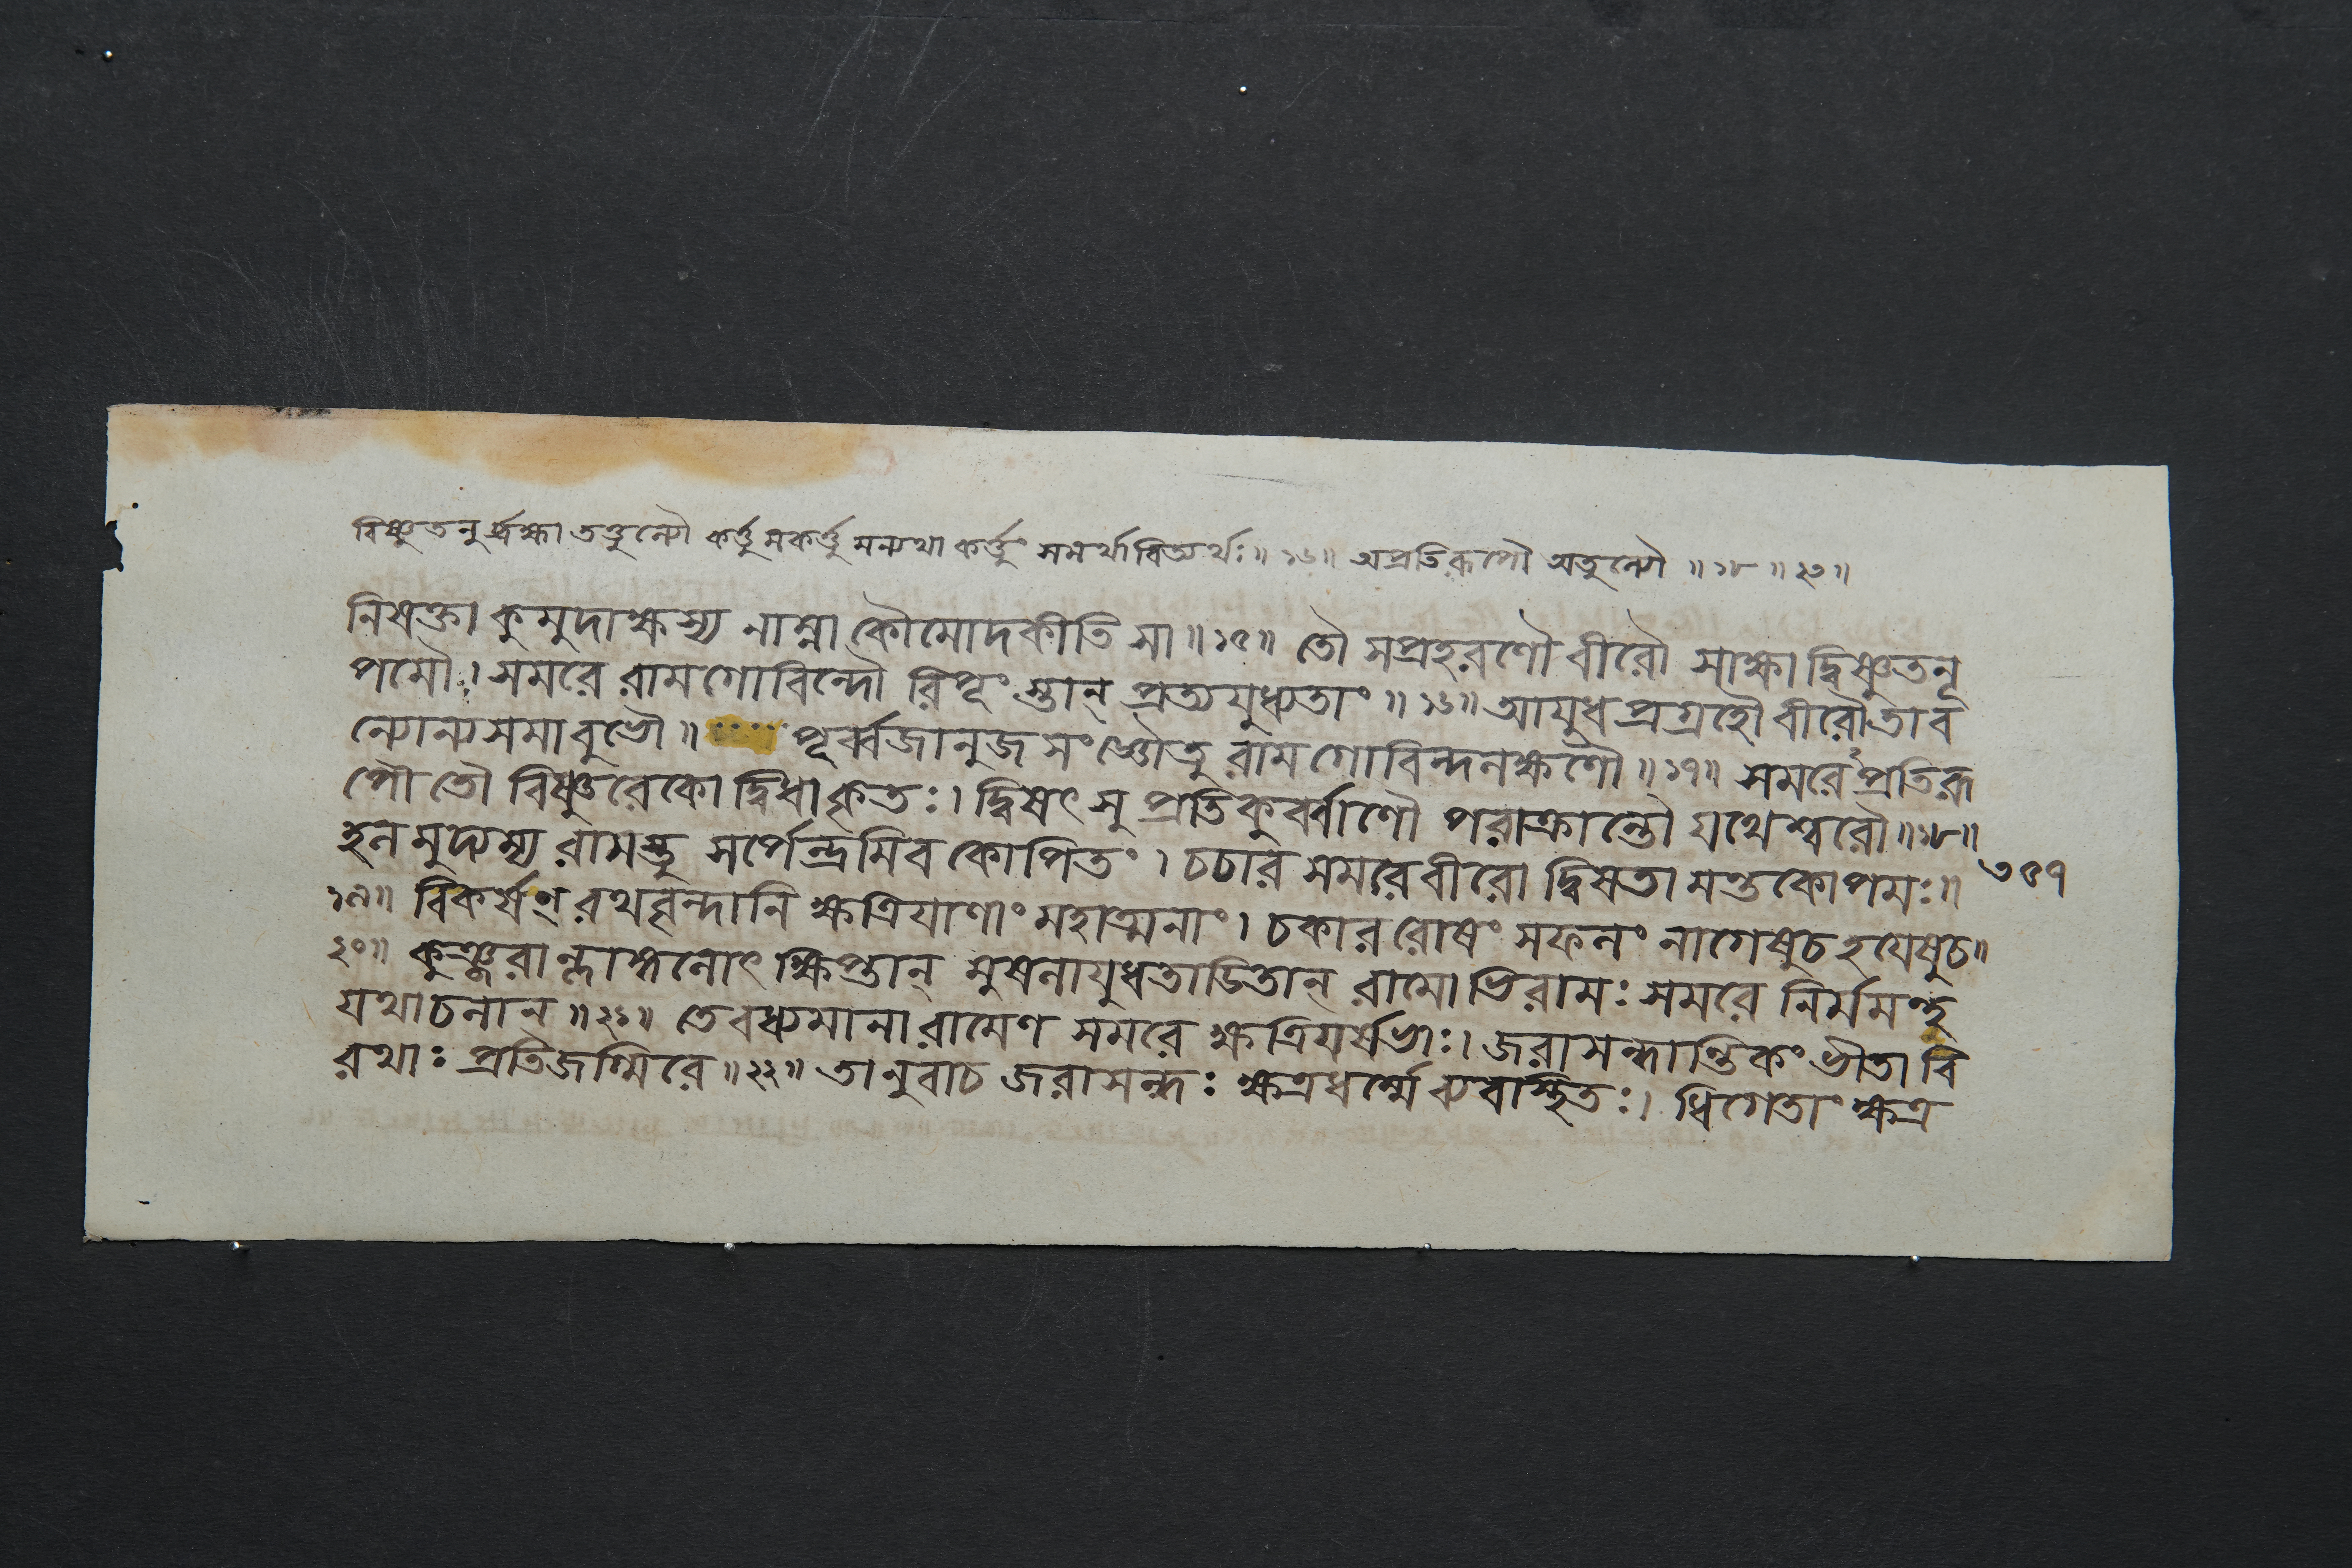 বিষ্ণুতনুর্ব্রহ্মা তত্তুল্যৌ কর্ত্তুমকর্ত্তুমন্যথা কর্ত্তুং সমর্থাবিত্যর্থঃ॥ ১৬॥ অপ্রতিরূপৌ অতুল্যৌ ॥ ১৮ ॥ ২০॥
নিযুক্তা কুমুদাক্ষস্য নাম্না কৌমোদকীতি সা॥১৫॥ তৌ সপ্রহরণৌ বীরৌ সাক্ষাদ্বিষ্ণুতনূ
পমৌ। সমরে রামগোবিন্দৌ রিপূংস্তান্ প্রত্যযুধ্যতাং॥ ১৬॥ আয়ুধপ্রগ্রহৌ বীরৌ তাব
ন্যোন্যসমাবুভৌ॥ পূর্ব্বজানুজসংজ্ঞৌতু রামগোবিন্দলক্ষণৌ॥১৭॥ সমরেঽপ্রতিরূ
পৌ তৌ বিষ্ণুরেকো দ্বিধাকৃতঃ। দ্বিষৎসু প্রতিকুর্ব্বাণৌ পরাক্রান্তৌ যথেশ্বরৌ॥১৮॥
হলমুদ্যম্য রামস্তু সর্পেন্দ্রমিব কোপিতং। চচার সমরে বীরো দ্বিষতামন্তকোপমঃ॥ ৩৫৭
১৯॥ বিকর্ষন্ রথবৃন্দানি ক্ষত্রিয়াণাং মহাত্মনাং। চকার রোষং সফলং নাগেষুচ হয়েষুচ॥
২০॥ কুঞ্জরাল্লাঙ্গলোৎক্ষিপ্তান্ মুষলায়ুধতাডিতান্ রামোভিরামঃ সমরে নির্মমন্থ
যথাচলান্॥২১॥ তে বধ্যমানা রামেণ সমরে ক্ষত্রিয়র্ষভাঃ। জরাসন্ধান্তিকং ভীতা বি
রথাঃ প্রতিজগ্মিরে॥২২॥ তানুবাচ জরাসন্ধঃ ক্ষত্রধর্ম্মে ব্যবস্থিতঃ। ধিগেতাং ক্ষত্র